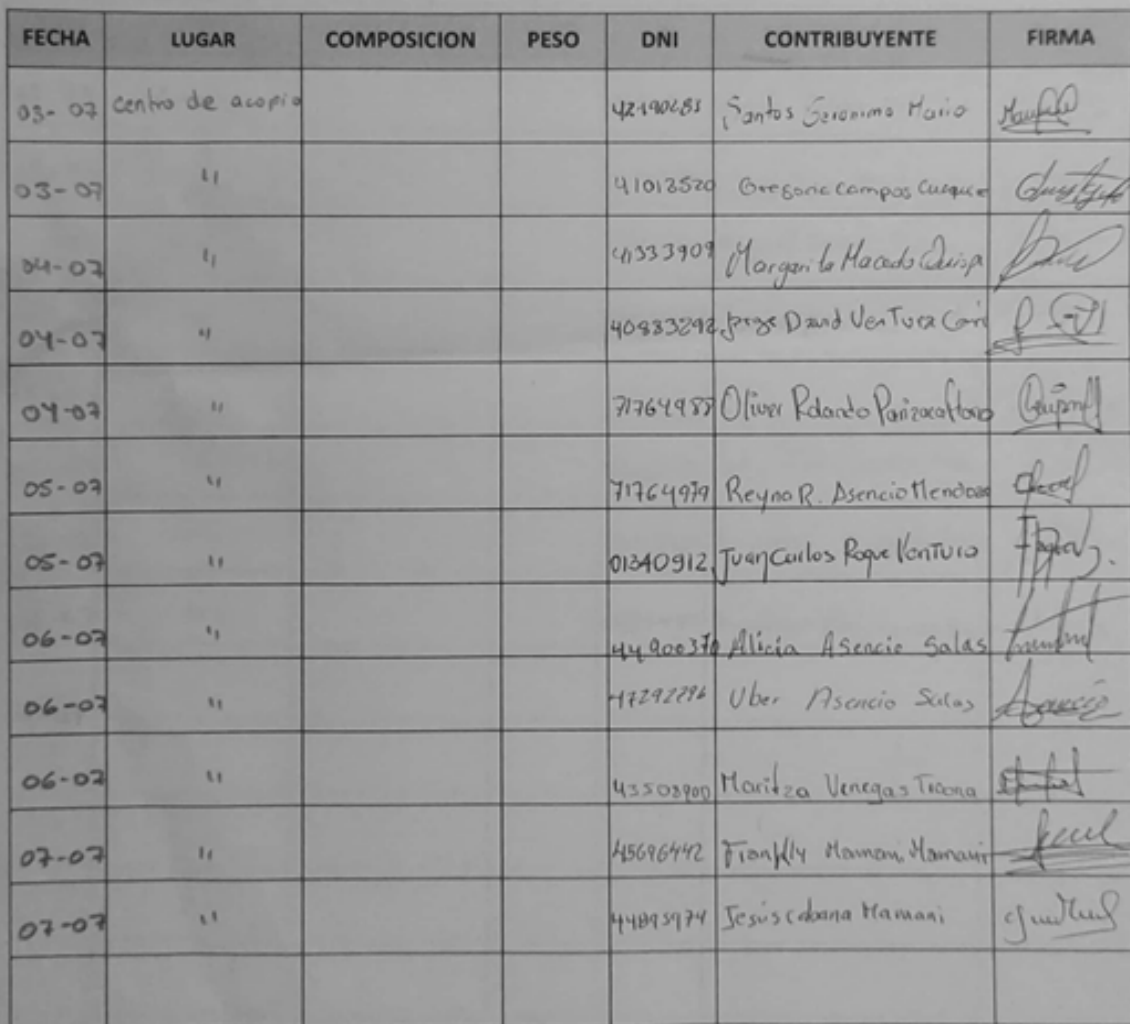 FECHA LUGAR COMPOSICION PESO DNI CONTRIBUYENTE FIRMA
03-07 centro de acopio Santos Geronimo Mario
03-07 " 41013520 Campos
04-07 " 41333909 Margarita Macedo Quispe
04-07 " 40883292 Jorge David Ventura Cari
04-07 " Oliver Rolando
05-07 " 71764979 Reyna R. Asencio Mendoza
05-07 " 01340912 Juan Carlos Roque Ventura
06-07 " 44900370 Alicia Asencio Salas
06-07 " 47292296 Uber Asencio Salas
06-07 " 43508900 Maritza Venegas Ticona
07-07 " 45696442 Mamani Mamani
07-07 " 44895974 Jesus cabana Mamani